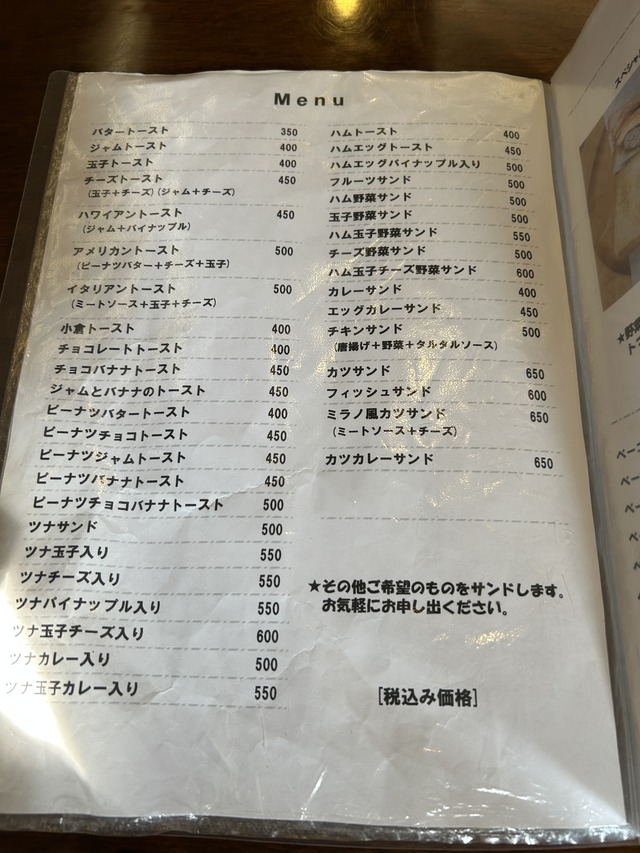 Menu
バタートースト 350
ジャムトースト 400
玉子トースト 400
チーズトースト 450
(玉子+チーズ)(ジャム+チーズ)
ハワイアントースト 450
(ジャム+パイナップル)
アメリカントースト 500
(ピーナツバター+チーズ+玉子)
イタリアントースト 500
(ミートソース+玉子+チーズ)
小倉トースト 400
チョコレートトースト 400
チョコバナナトースト 450
ジャムとバナナのトースト 450
ピーナツバタートースト 400
ピーナツチョコトースト 450
ピーナツジャムトースト 450
ピーナツバナナトースト 450
ピーナツチョコバナナトースト 500
ツナサンド 500
ツナ玉子入り 550
ツナチーズ入り 550
ツナパイナップル入り 550
ツナ玉子チーズ入り 600
ツナカレー入り 500
ツナ玉子カレー入り 550
ハムトースト 400
ハムエッグトースト 450
ハムエッグパイナップル入り 500
フルーツサンド 500
ハム野菜サンド 500
玉子野菜サンド 500
ハム玉子野菜サンド 550
チーズ野菜サンド 500
ハム玉子チーズ野菜サンド 600
カレーサンド 400
エッグカレーサンド 450
チキンサンド 500
(唐揚げ+野菜+タルタルソース)
カツサンド 650
フィッシュサンド 600
ミラノ風カツサンド 650
(ミートソース+チーズ)
カツカレーサンド 650
★その他ご希望のものをサンドします。
お気軽にお申し出ください。
[税込み価格]